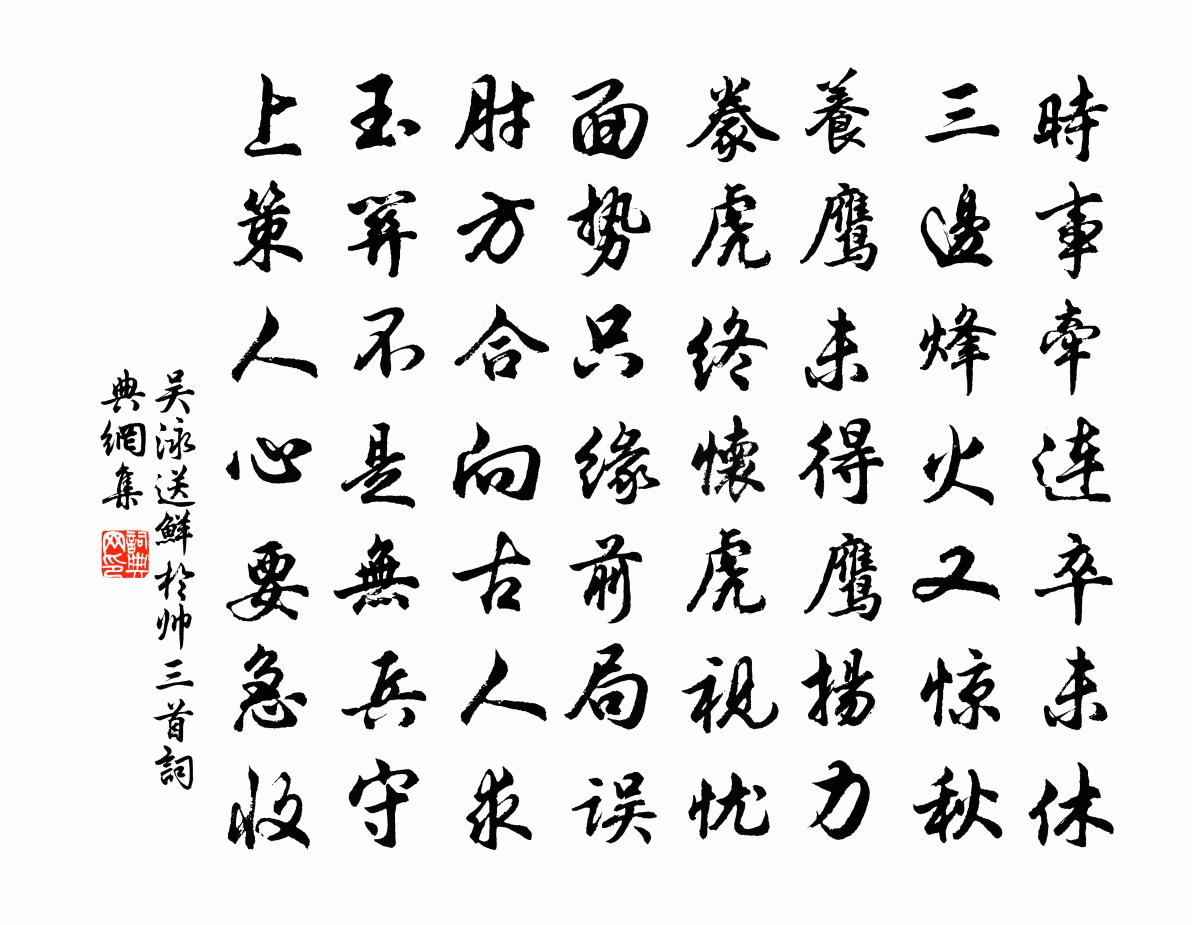 時事牽連卒未休
三邊烽火又惊秋
養鹰未得鹰揚力
豢虎终懷虎視忧
面势只缘前局误
肘方合向古人求
玉関不是無兵守
上策人心要急收
吴泳送鮮於帅三首詞
典網集
詞典
网印